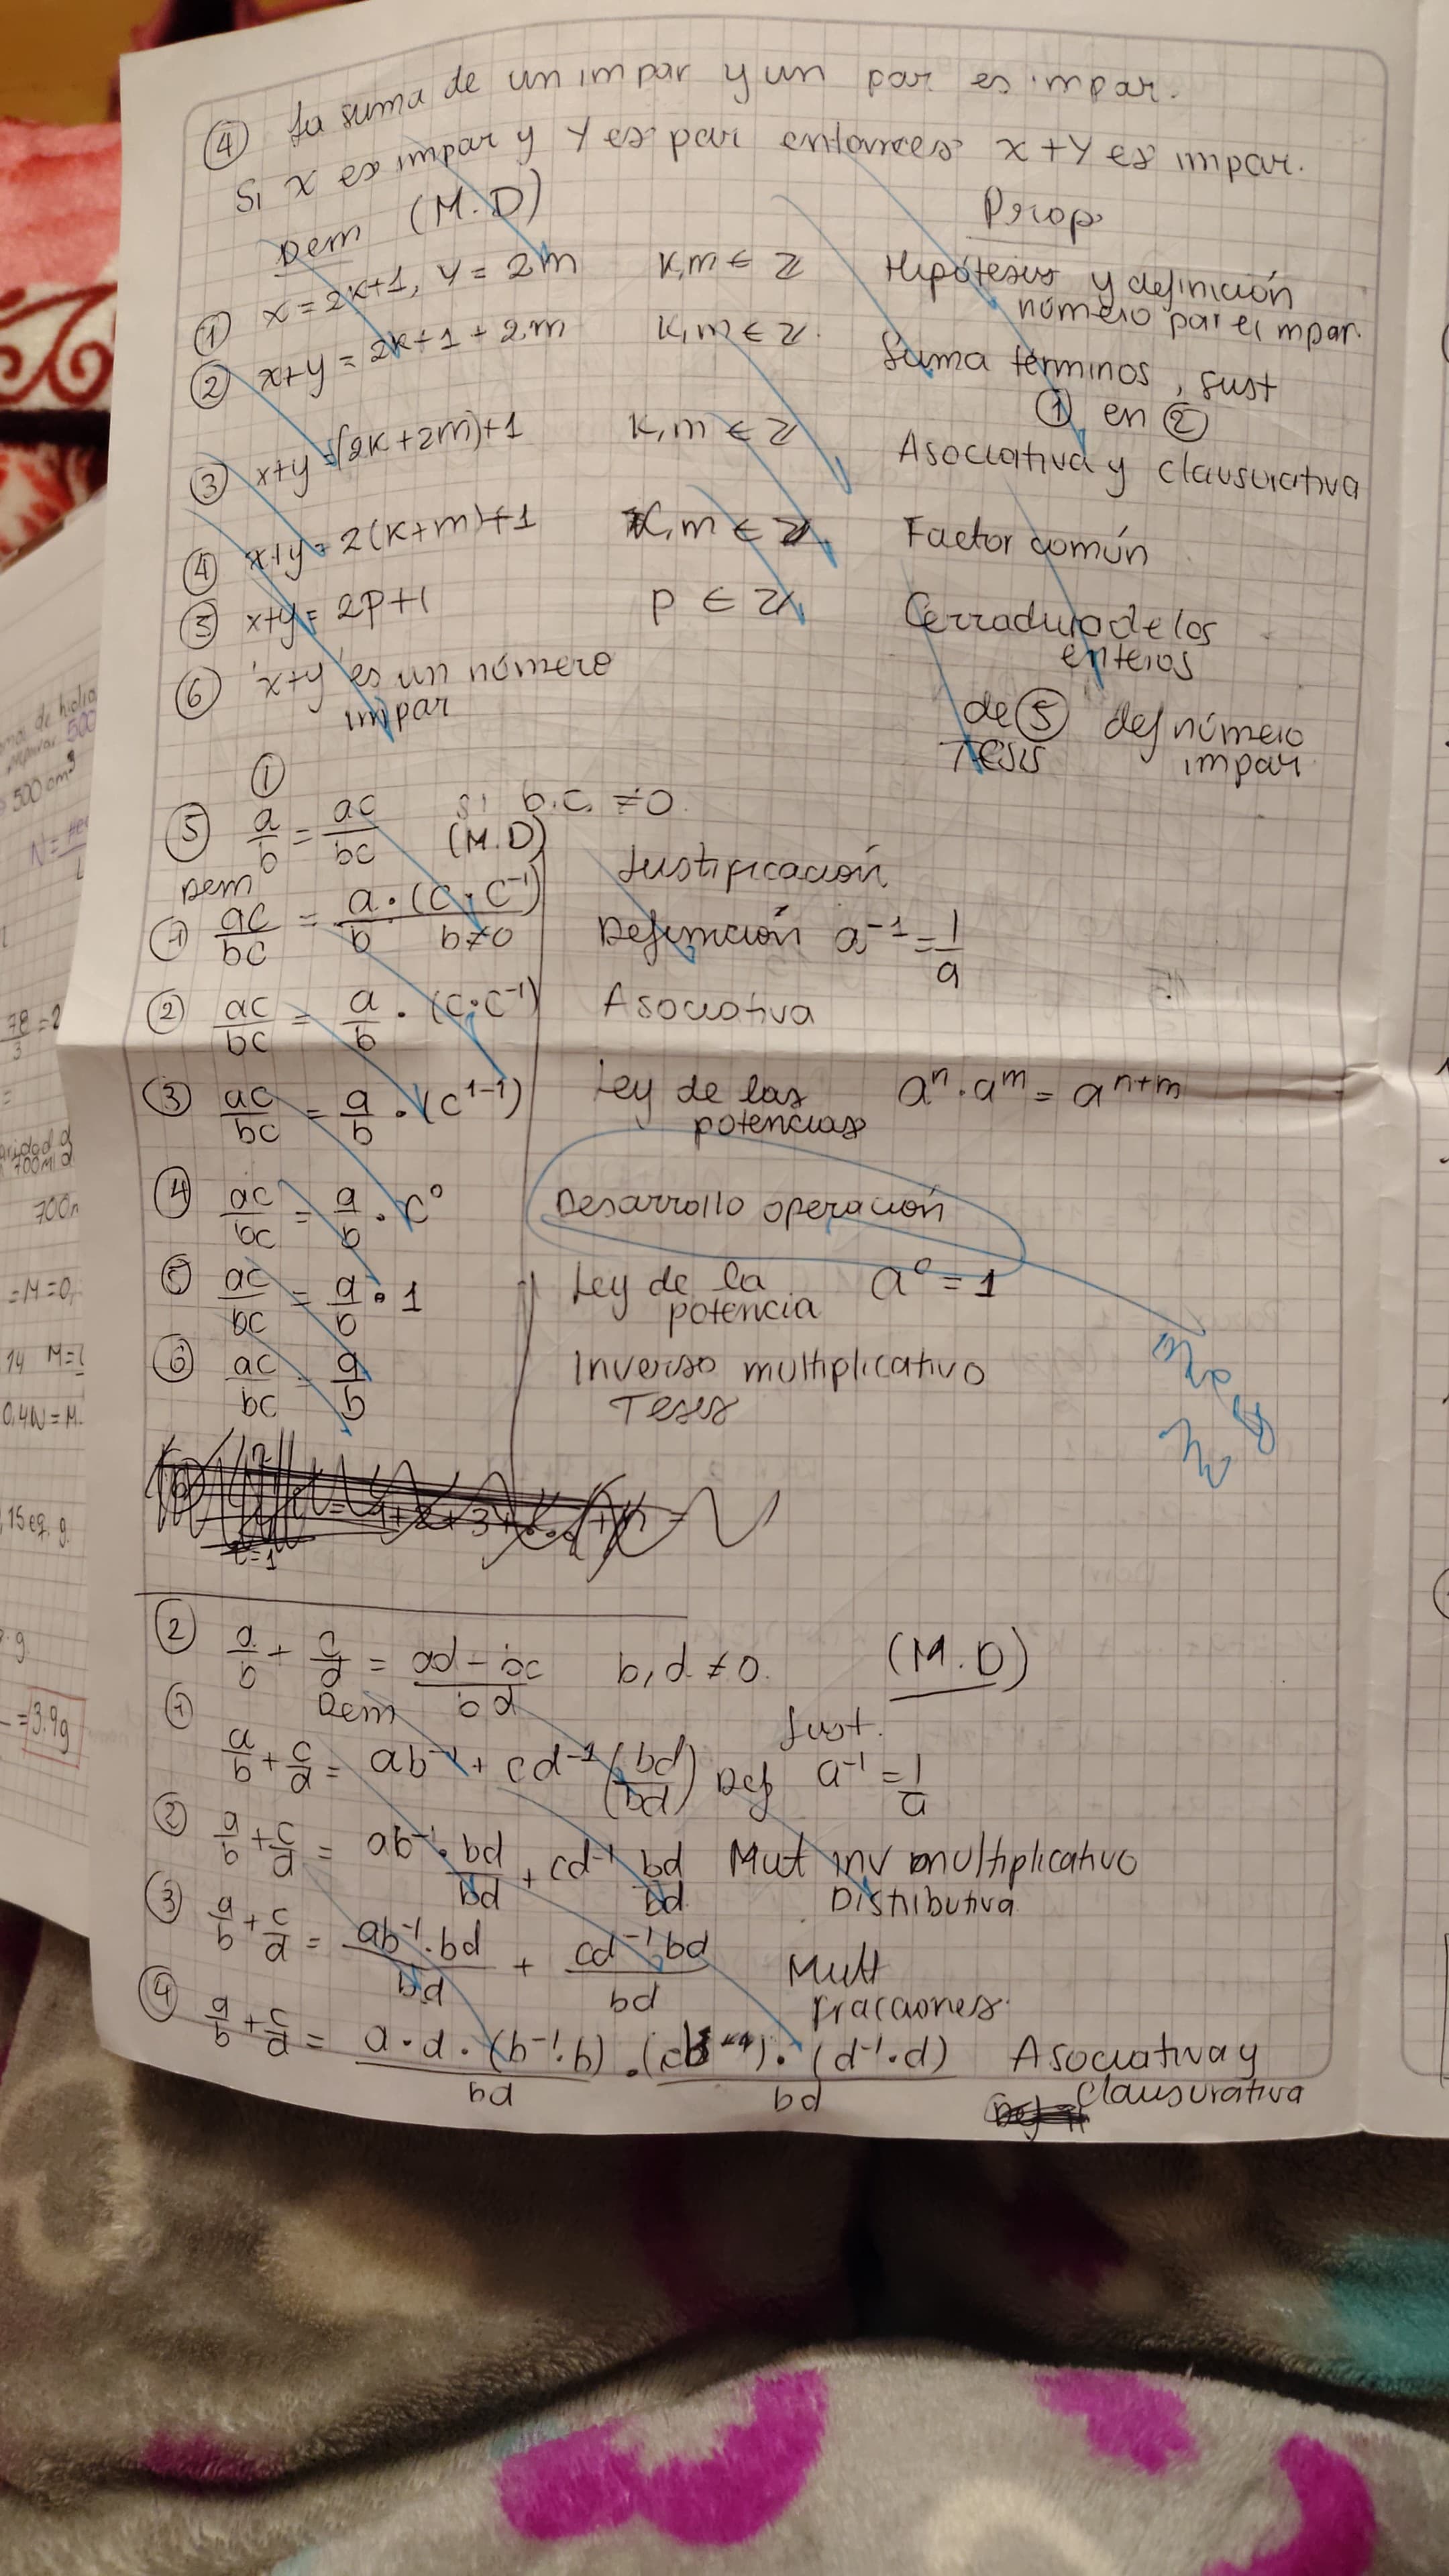 ④ La suma de un impar y un par es impar.
Si x es impar y Y es par entonces x+Y es impar.
Dem (M.D) Prop.
① x=2k+1, Y=2m k,m ∈ ℤ Hipótesis y definición
número par e impar.
② x+y = 2k+1+2m k,m ∈ ℤ. Suma términos, sust
① en ②
③ x+y=(2k+2m)+1 k,m ∈ ℤ Asociativa y clausurativa
④ x+y=2(k+m)+1 k,m ∈ ℤ. Factor común
⑤ x+y= 2p+1 p ∈ ℤ Cerradura de los
enteros
⑥ x+y es un número
impar de ⑤ def número
Tesis impar
①
⑤ a/b = ac/bc si b.c. ≠0.
(M.D)
Dem Justificación
① ac/bc = a·(c·c⁻¹)/b b≠0 Definición a⁻¹=1/a
② ac/bc = a/b · (c·c⁻¹) Asociativa
③ ac/bc = a/b · (c¹⁻¹) Ley de las aⁿ·aᵐ = aⁿ⁺ᵐ
potencias
④ ac/bc = a/b · c⁰ Desarrollo operación
⑤ ac/bc = a/b · 1 Ley de la a⁰ = 1
potencia
⑥ ac/bc = a/b Inverso multiplicativo
Tesis
i=1
② a/b + c/d = ad-bc/bd b,d ≠ 0. (M.D)
Dem Just.
① a/b + c/d = ab⁻¹ + cd⁻¹ (bd/bd) Def a⁻¹ = 1/a
② a/b + c/d = ab⁻¹·bd/bd + cd⁻¹ bd/bd Mut inv multiplicativo
Distributiva
③ a/b + c/d = ab⁻¹·bd/bd + cd⁻¹·bd/bd Mult
Fracciones.
④ a/b + c/d = a·d·(b⁻¹·b)/bd · (d⁻¹·d)/bd Asociativa y
Clausurativa